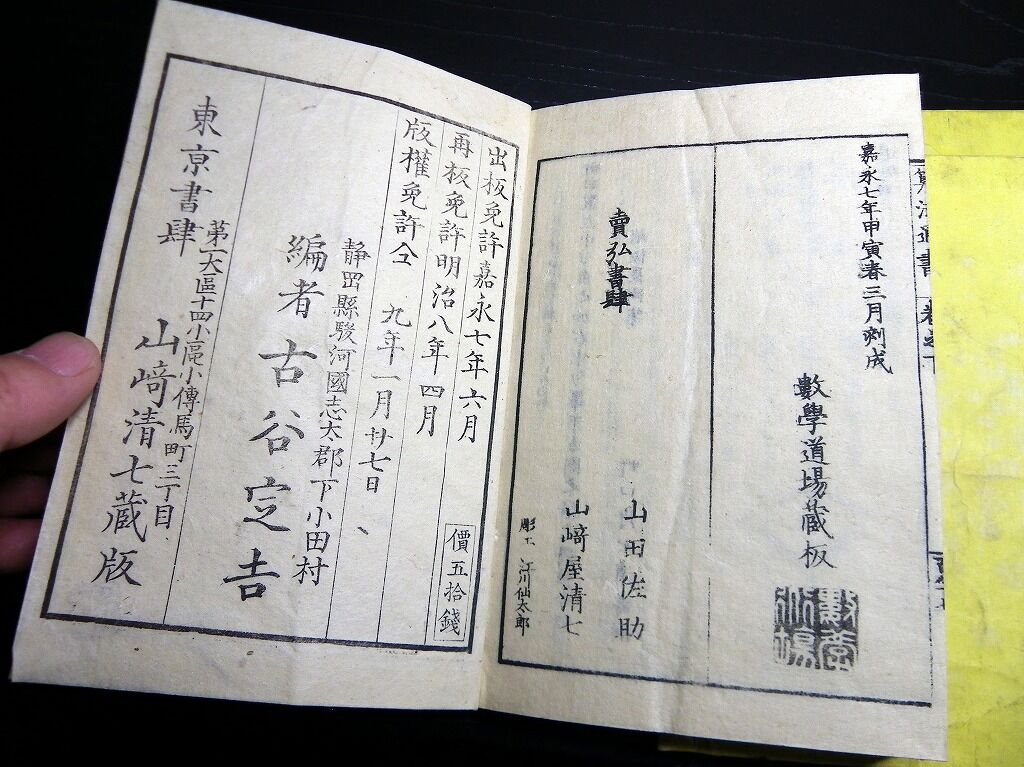 算法通書 巻之下
嘉永七年甲寅春三月刻成
數學道場蔵板
賣弘書肆
山田佐助
山﨑屋清七
彫工 江川仙太郎
出板免許嘉永七年六月
再板免許明治八年四月
版權免許仝 九年一月廿七日
價五拾錢
静岡縣駿河國志太郡下小田村
編者古谷定吉
東京書肆
第一大區十四小區小傳馬町三丁目
山﨑清七蔵版